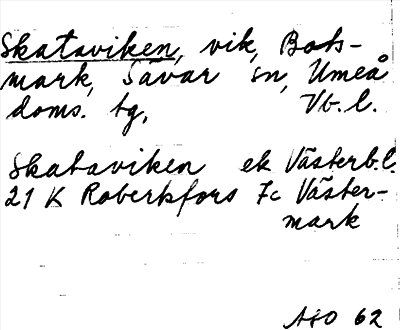 Skataviken, vik, Bots-
mark, Sävar sn, Umeå
doms. tg, Vb.l.
Skataviken ek Västerb.l.
21 K Robertsfors 7c Väster-
mark
ASO 62